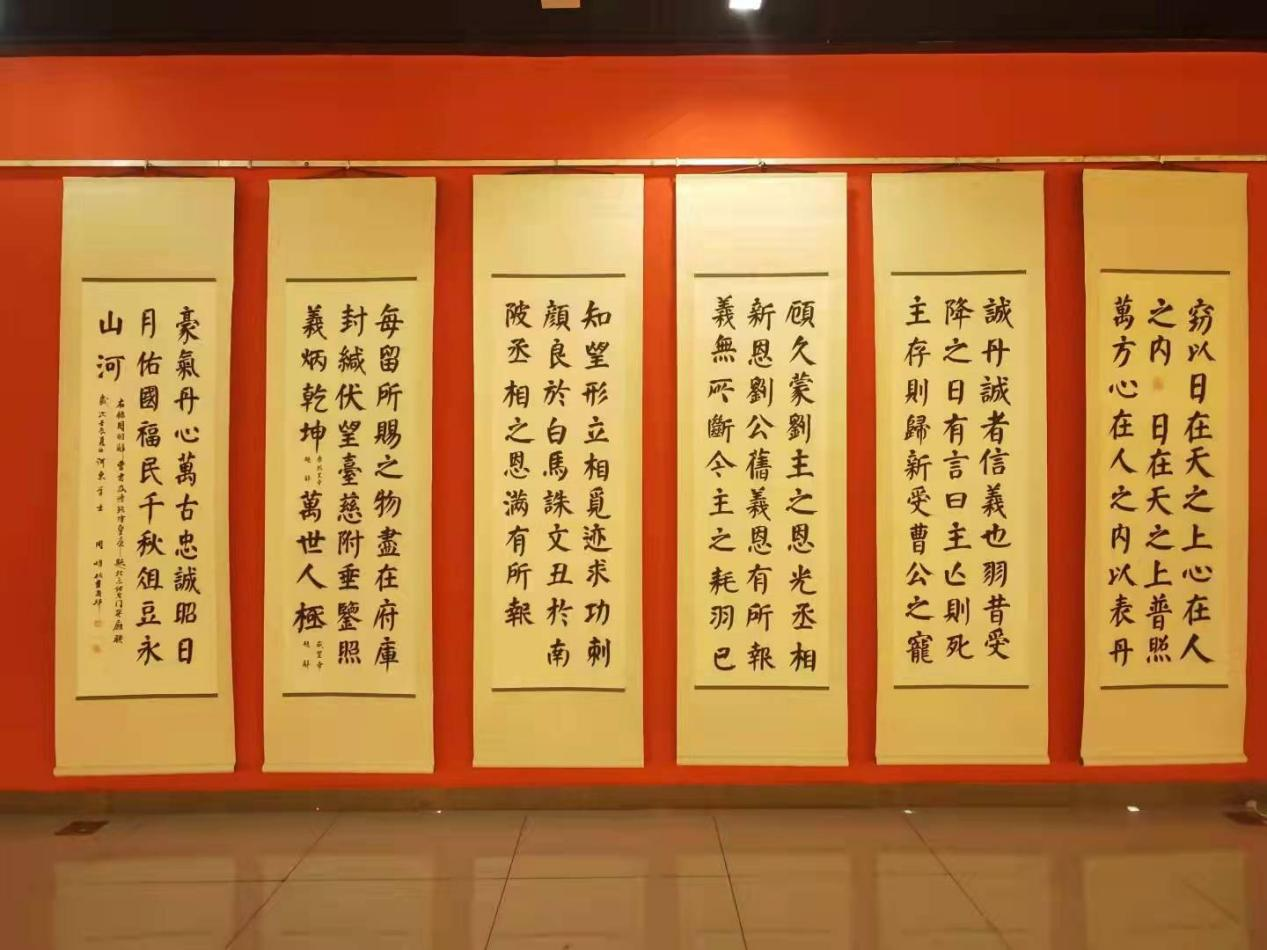 窃以日在天之上心在人
之内 日在天之上普照
萬方心在人之内以表丹
誠丹誠者信義也羽昔受
降之日有言曰主亡則死
主存則歸新受曹公之寵
顾久蒙劉主之恩光丞相
新恩劉公舊義恩有所報
義無所斷今主之耗羽已
知望形立相覓迹求功刺
顏良於白馬誅文丑於南
陂丞相之恩满有所報
每留所賜之物盡在府庫
封緘伏望臺慈附垂鑒照
義炳乾坤 萬世人極
豪氣丹心萬古忠誠昭日
月佑國福民千秋俎豆永
山河